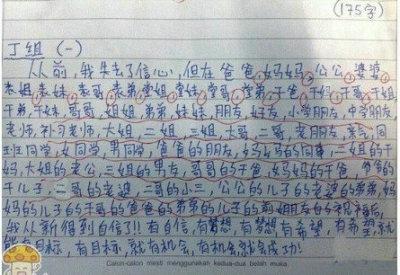 (175字)
丁组 (一)
从前,我失去了信心,但在爸爸,妈妈,公公,婆婆,
表姐,表妹,表哥,表弟,堂姐,堂妹,堂哥,堂弟,干爸,干妈,干哥,干姐,
干弟,干妹,哥哥,姐姐,弟弟,妹妹,朋友,好友,小学朋友,中学朋友,
老师,补习老师,大姐,二姐,三姐,大哥,二哥,老朋友,亲气,同
班同学,女同学,男同学,爸爸的朋友,妈妈的同事,二姐的干
妈,大姐的老公,三姐的男友,哥哥的干爸,妈妈的干爸,爸爸的
干儿子,二哥的老婆,二哥的小三,公公的儿子的老婆的弟弟,妈
妈的儿子的干哥的爸爸的弟弟的儿子的表姐朋友的祝福后,
我从新得到自信了!!有自信,有梦想,有梦想有希望,有希望,就
有目标,有目标,就有机会,有机会就会成功!
Calon-calon mesti menggunakan kedua-dua belah muka